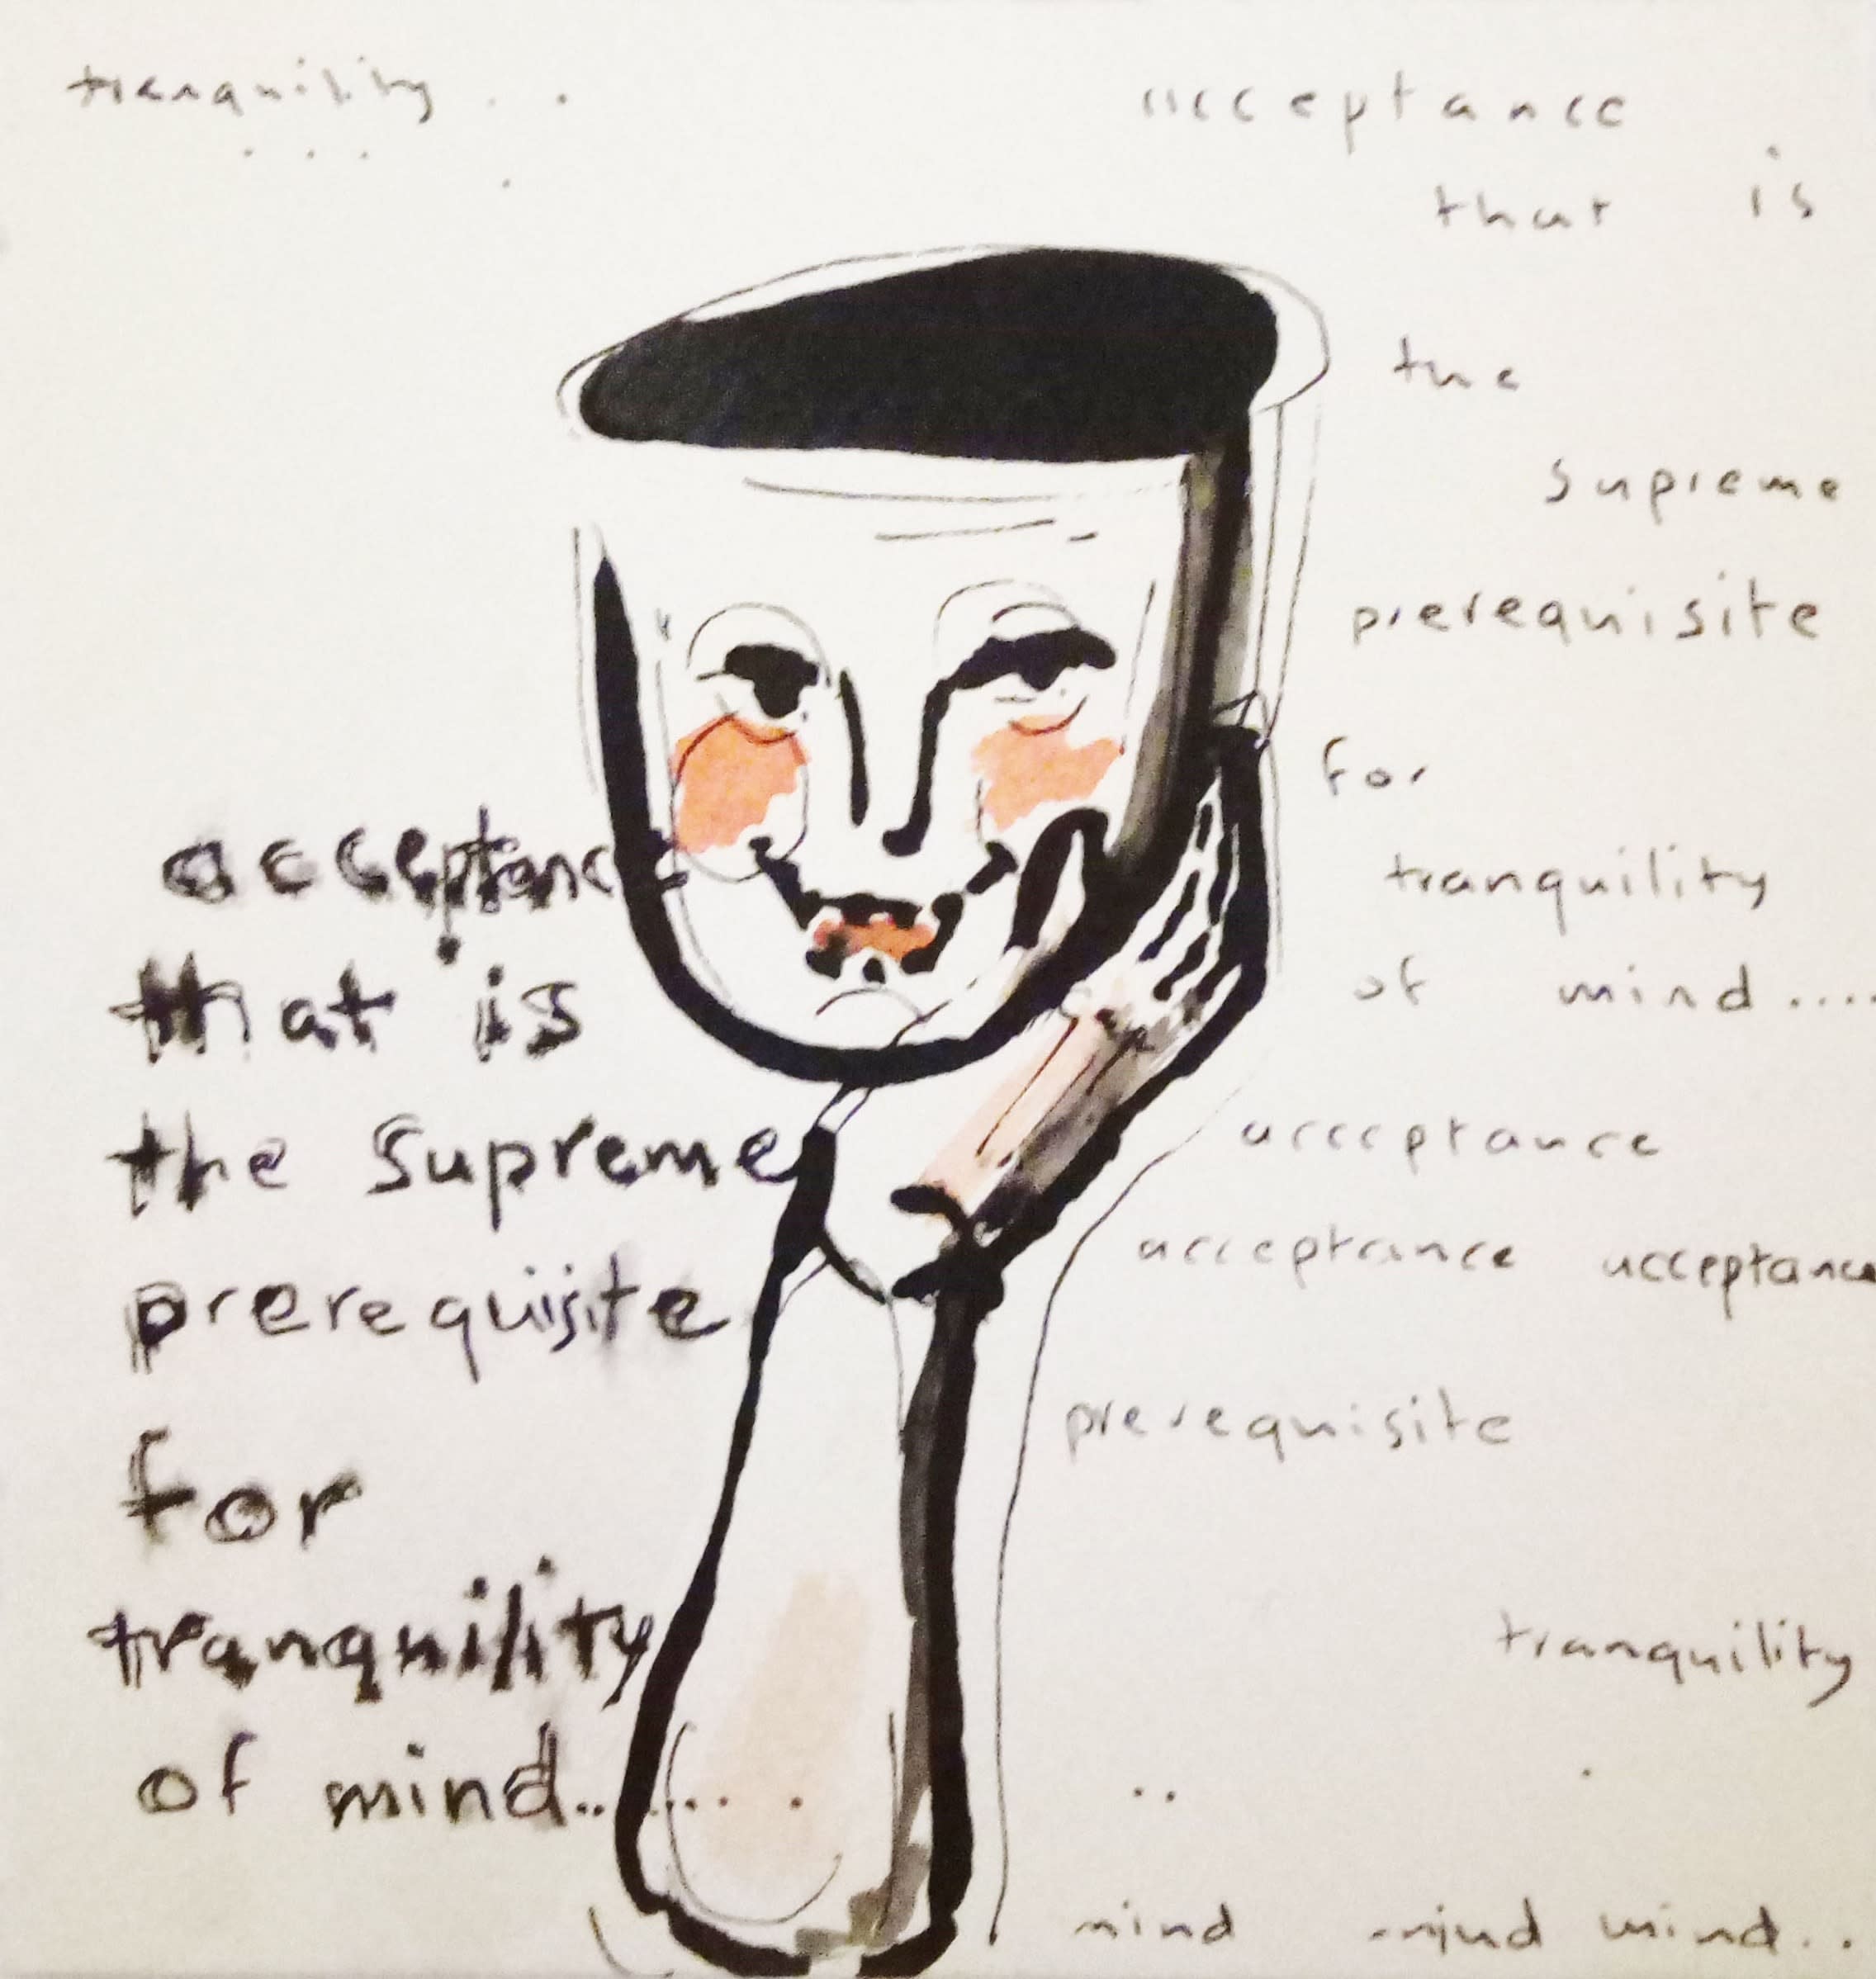 tranquility . .
acceptance
that is
the
supreme
prerequisite
for
tranquility
of mind....
acceptance
acceptance acceptance
prerequisite
tranquility
mind mind mind..
acceptance
that is
the supreme
prerequisite
for
tranquility
of mind.......